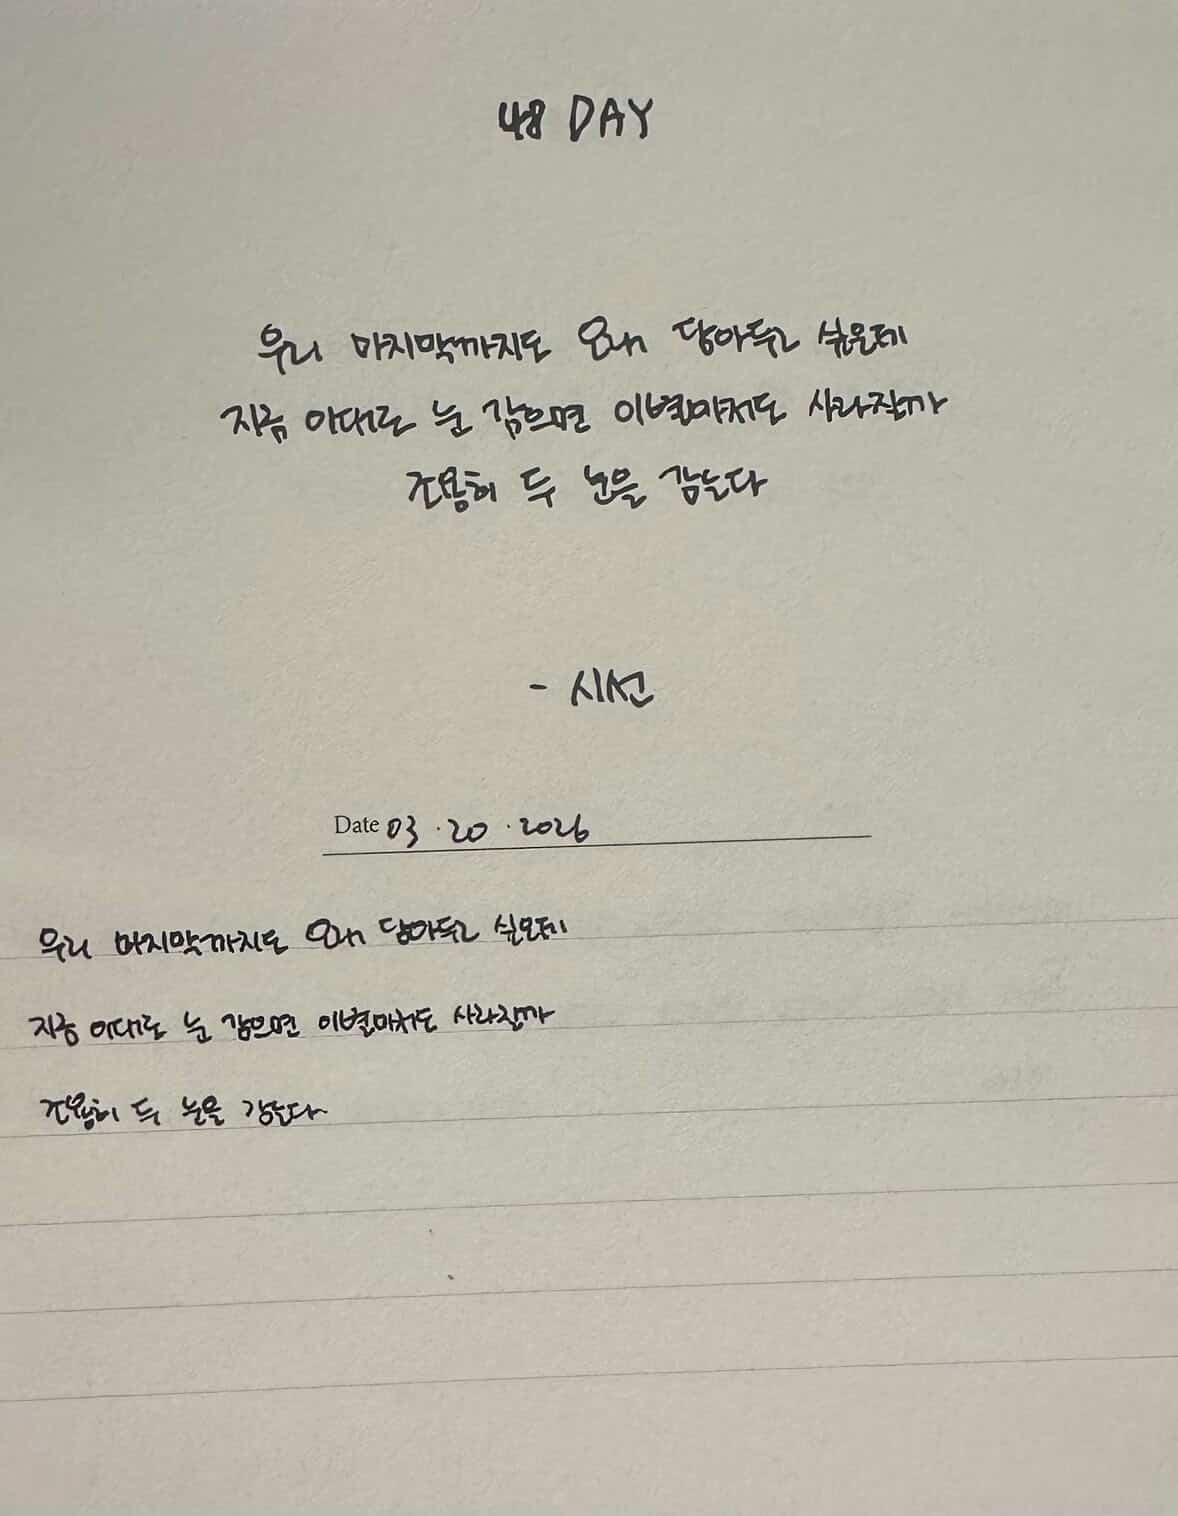 48 DAY
우리 마지막까지도 오래 담아두고 싶은데
지금 이대로 눈 감으면 이별마저도 사라질까
조용히 두 눈을 감는다
- 시선
Date 03 · 20 · 2026
우리 마지막까지도 오래 담아두고 싶은데
지금 이대로 눈 감으면 이별마저도 사라질까
조용히 두 눈을 감는다